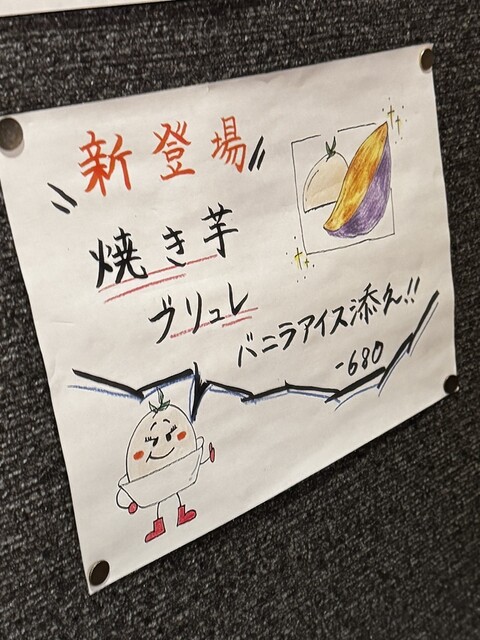 新登場
焼き芋
ブリュレ
バニラアイス添え!!
-680